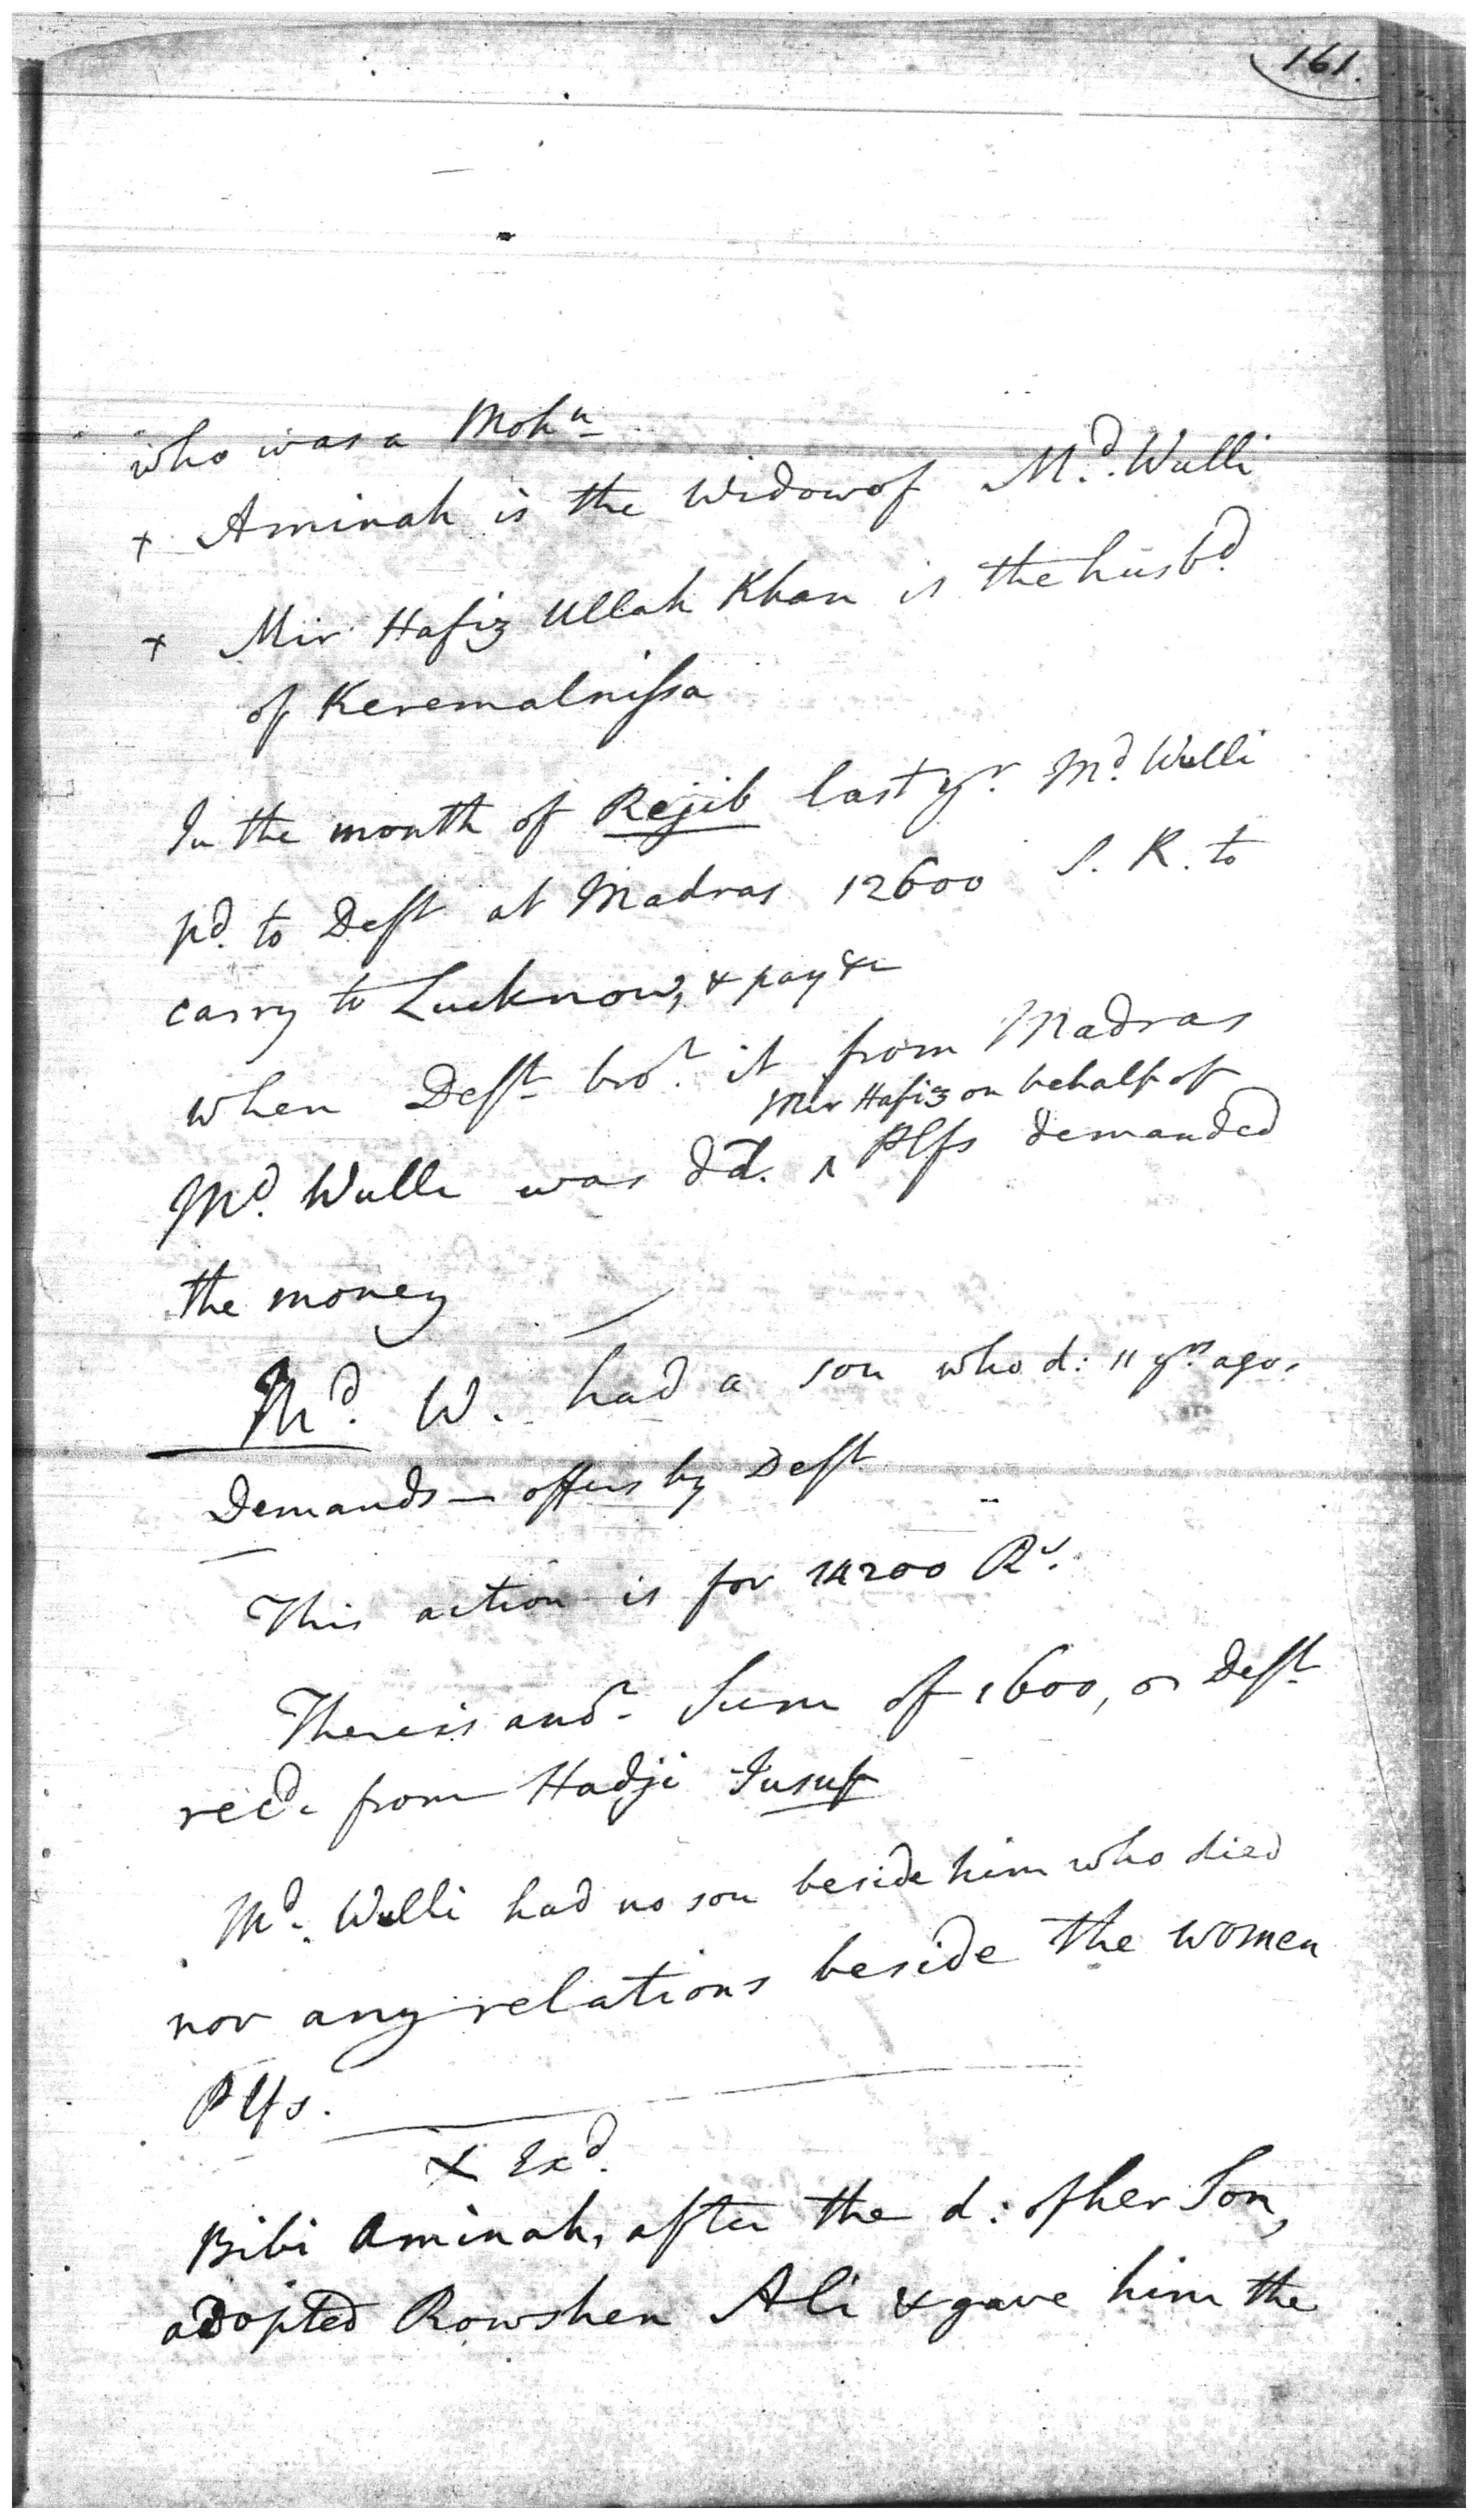 161.
who was a Mohn
+ Aminah is the Widow of Md. Wulli
+ Mir Hafiz Ullah Khan is the husbd.
of Keremalnissa
In the month of Rejib last yr. Md. Wulli
pd. to Deft at Madras 12600 S. R. to
carry to Lucknow, & pay &c
when Deft brot. it from Madras
Mir Hafiz on behalf of
Md. Wulli was dd. ^ Plfs demanded
the money
Md. W. had a son who d: 11 yrs ago.
Demands — offers by Deft
This action is for 14200 Rs.
There is anor. Sum of 1600, Deft
recd. from Hadji Iusuf
Md. Wulli had no son beside him who died
nor any relations beside the women
Plfs.
X Exd.
Bibi Aminah, after the d: of her Son,
adopted Rowshen Ali & gave him the